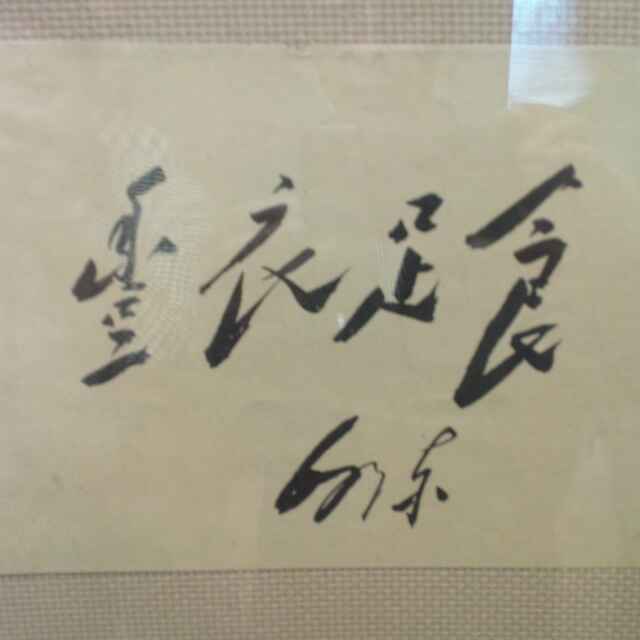 豐衣足食
东